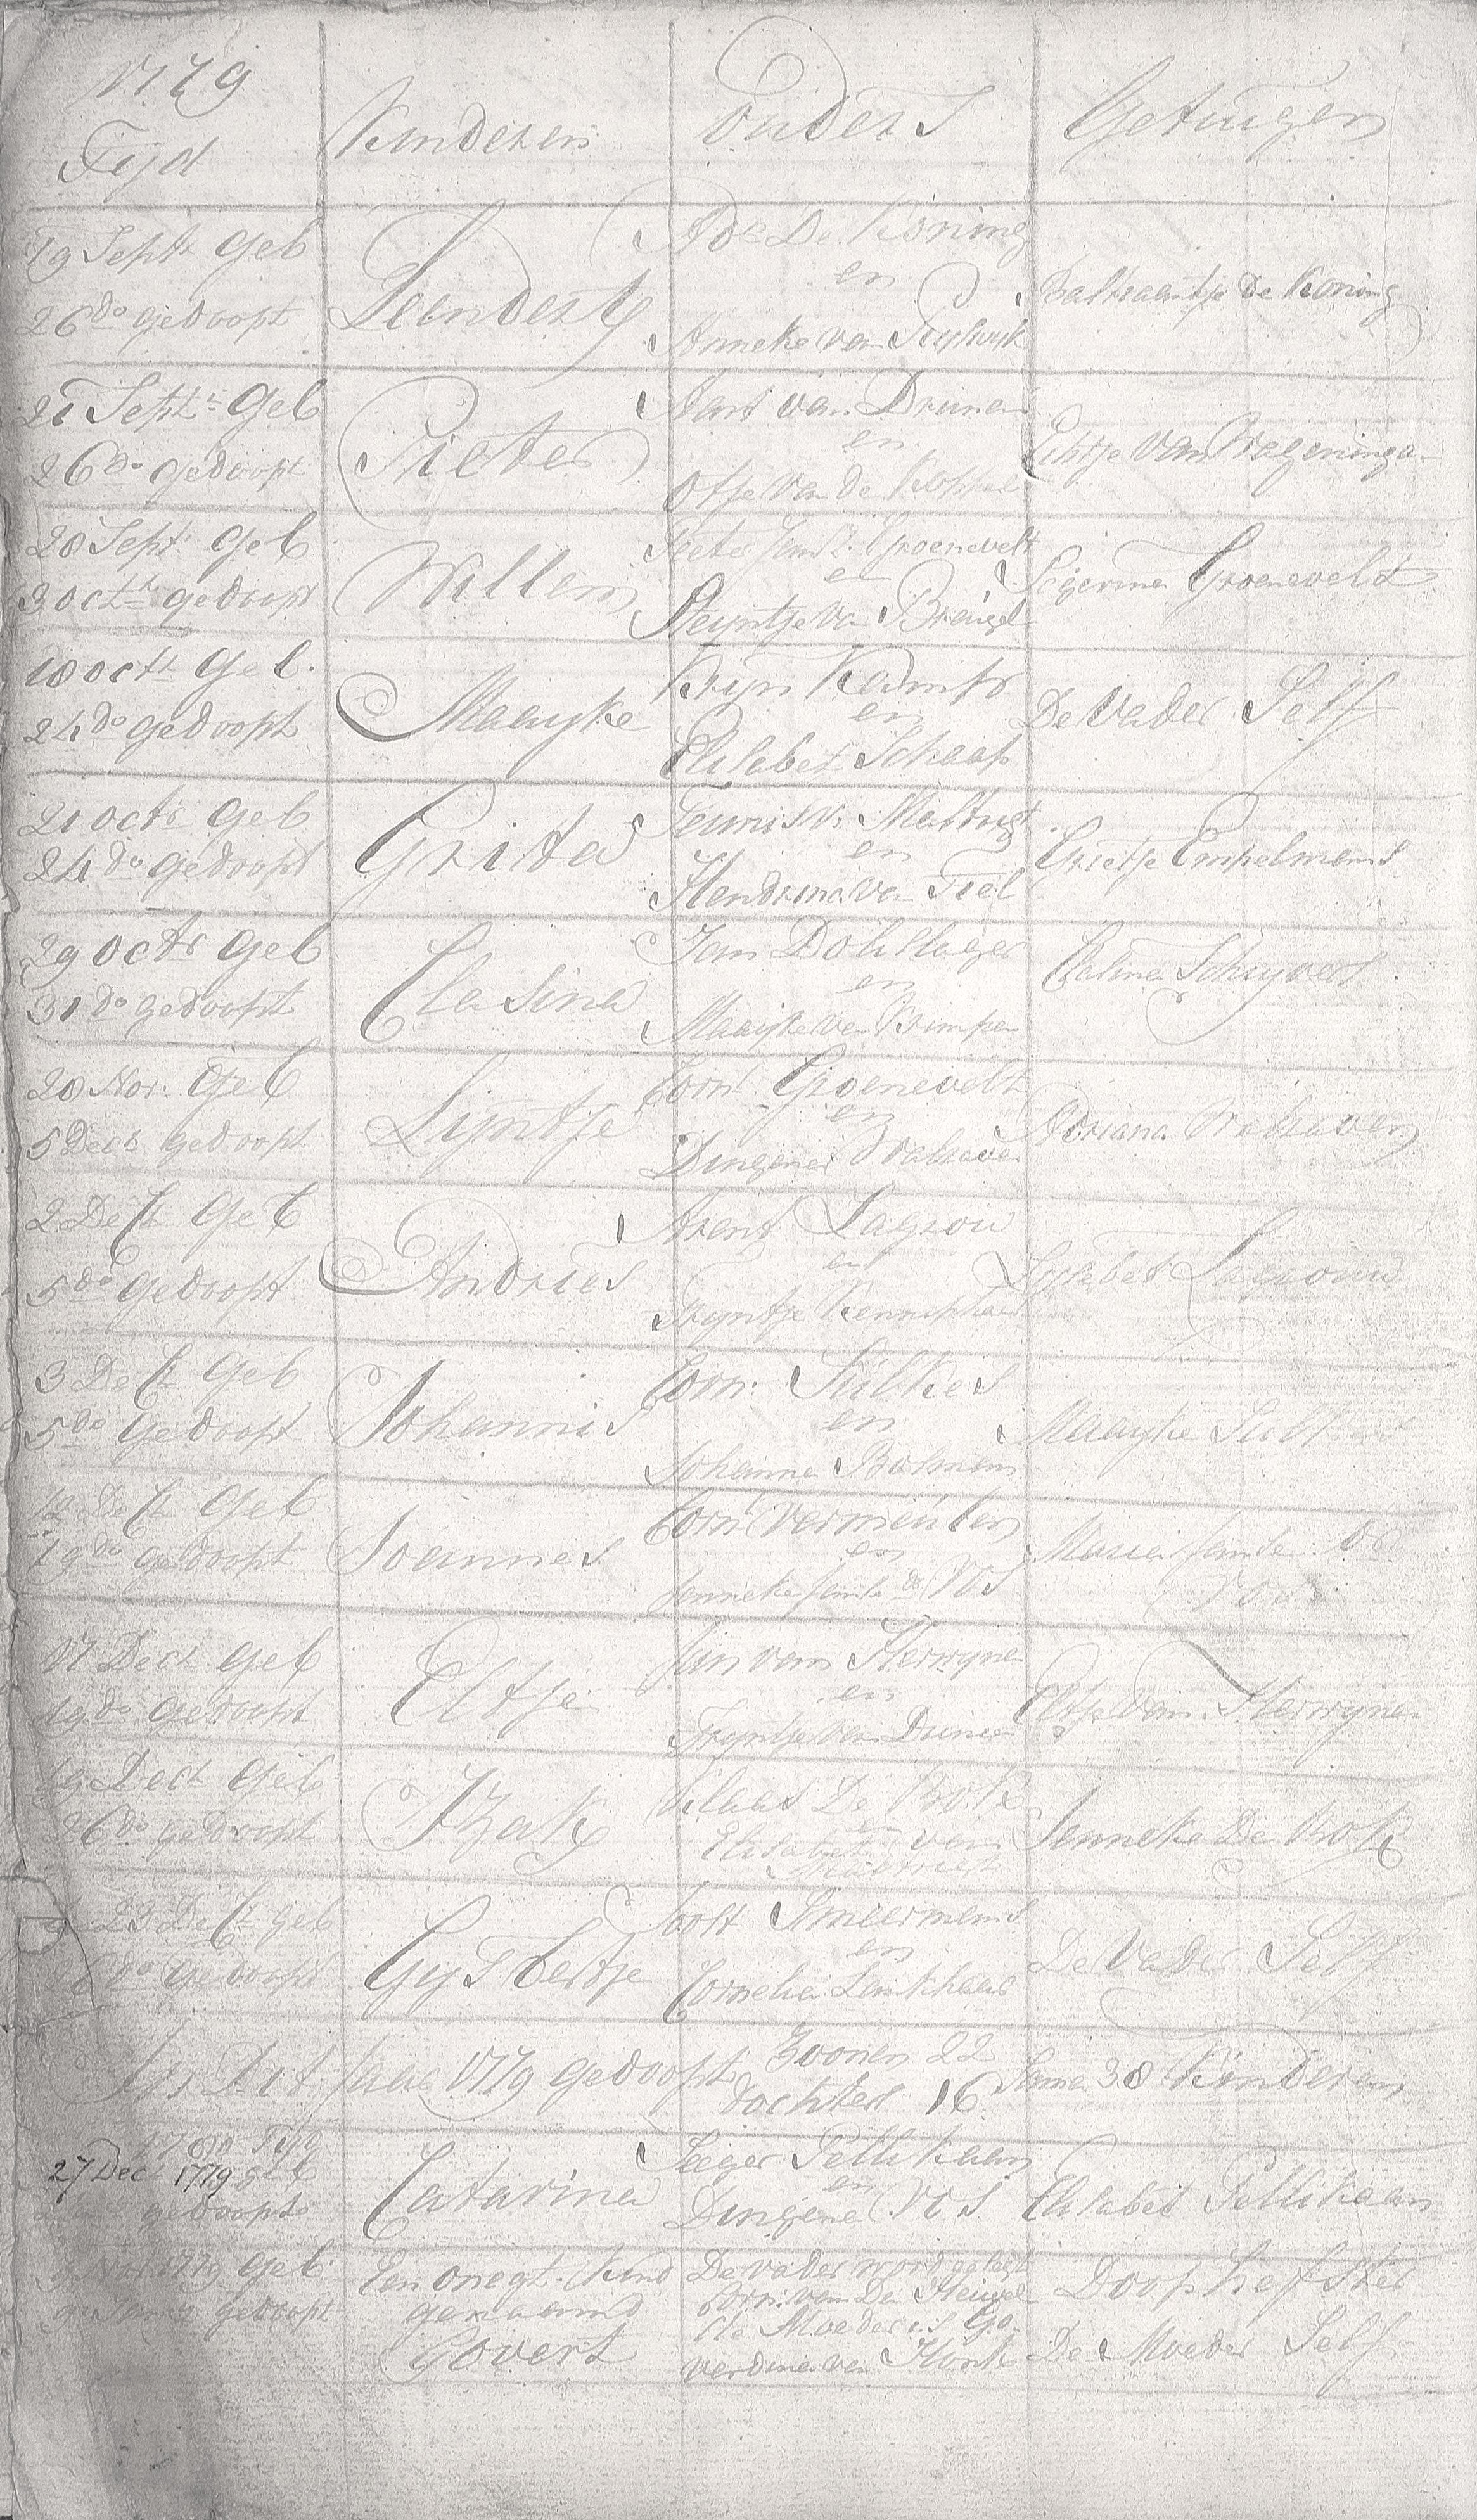 1779
Tijd Kinderen Ouders Getuigen
19 Septr Geb
26 do gedoopt
Leendert
Ads De Koning
en
Anneke van Ryswyk
Baltzaartje De Koning
21 Septr Geb
26 do gedoopt
Pieter
Aart van Drunen
en
Otje van de Koppel
van Wageninge
28 Septr Geb
3 Octr gedoopt
Willem
Peeter Groenevelt
en
Steyntje van Breugel
Segerina Groenevelt
18 Octr Geb.
24 do gedoopt
Maayke
Kryn Kamp
en
Elisabet Schaap
De Vader Self
21 Octr Geb
24 do gedoopt
Grita
Teunis v.
en
Hendrina van Tiel
Grietje Empelmans
29 Octr Geb
31 do gedoopt
Clasina
Jan Dolislager
en
Maaijke van Krimpe
Schuyvers
28 Nov: Geb
5 Decr gedoopt
Lijntje
Corns Groenevelt
en
Dingena Walraven
Adriana Walraven
2 Decr Geb
5 do gedoopt
Andries
Arent Lagrou
en
Tryntje
Lysebet Lagrouw
3 Decr Geb
5 do Gedoopt
Johannis
Corn: Suikes
en
Johanna
Maayke
12 Decr Geb
19 do gedoopt
Joannes
Corns Vermeulen
en
Jenneke Janse de Vos
Maria Janse de
Vos
17 Decr Geb
19 do Gedoopt
Eltje
Jan van Herwyne
en
Tryntje van Drunen
Eltje van Herwyne
19 Decr Geb
26 do gedoopt
Izak
Klaas De Bok
en
Elisabet van
Jenneke De Bok
23 Decr geb
26 do Gedoopt
Gysbertje
Joost Smeermans
en
Cornelia
De Vader Self
In Dit Jaar 1779 gedoopt Zoonen 22
Dochters 16 Soma 38 Kinderen
1780 Tijd
27 Dec 1779 geb
gedoopt
Catarina
Seeger Pellikaan
en
Dingena Vos
Elisabet Pellikaan
Nov 1779 Geb
gedoopt
Een onegt. Kind
genaamd
Govert
De vader word gelegt
Corn: van De Heuvel
de Moeder is Go-
verdina van Honk
Doophefster
De Moeder Self